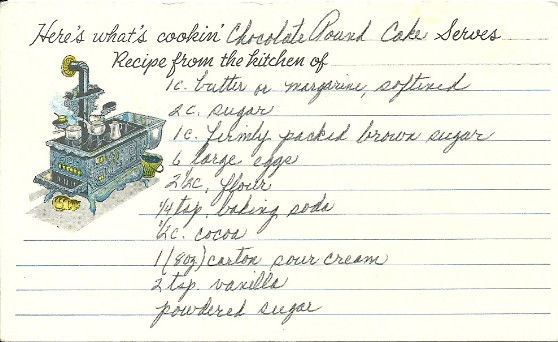 Here's what's cookin' Chocolate Pound Cake Serves
Recipe from the kitchen of
1c. butter or margarine, softened
2c. sugar
1c. firmly packed brown sugar
6 large eggs
2 1/2c. flour
1/4 tsp. baking soda
1/2c. cocoa
1 (8oz) carton sour cream
2 tsp. vanilla
powdered sugar